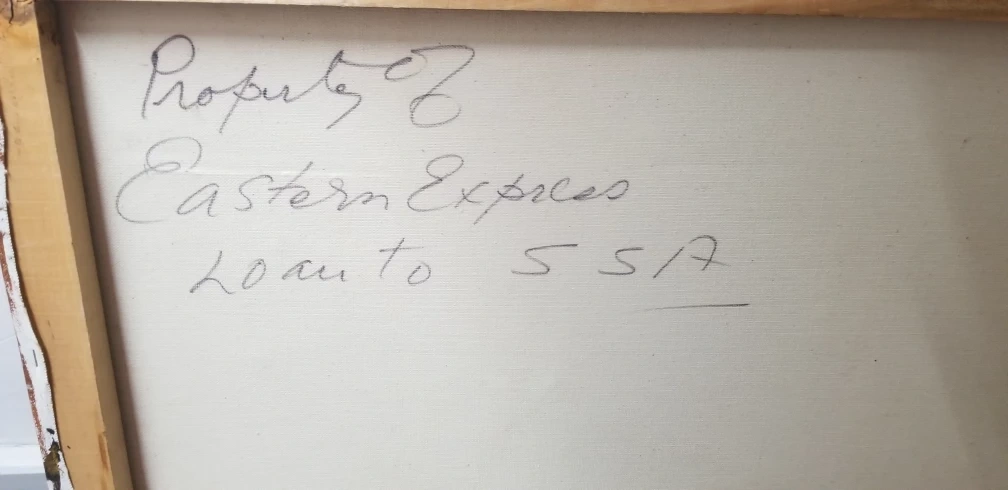 Property of
Eastern Express
Loan to SSA